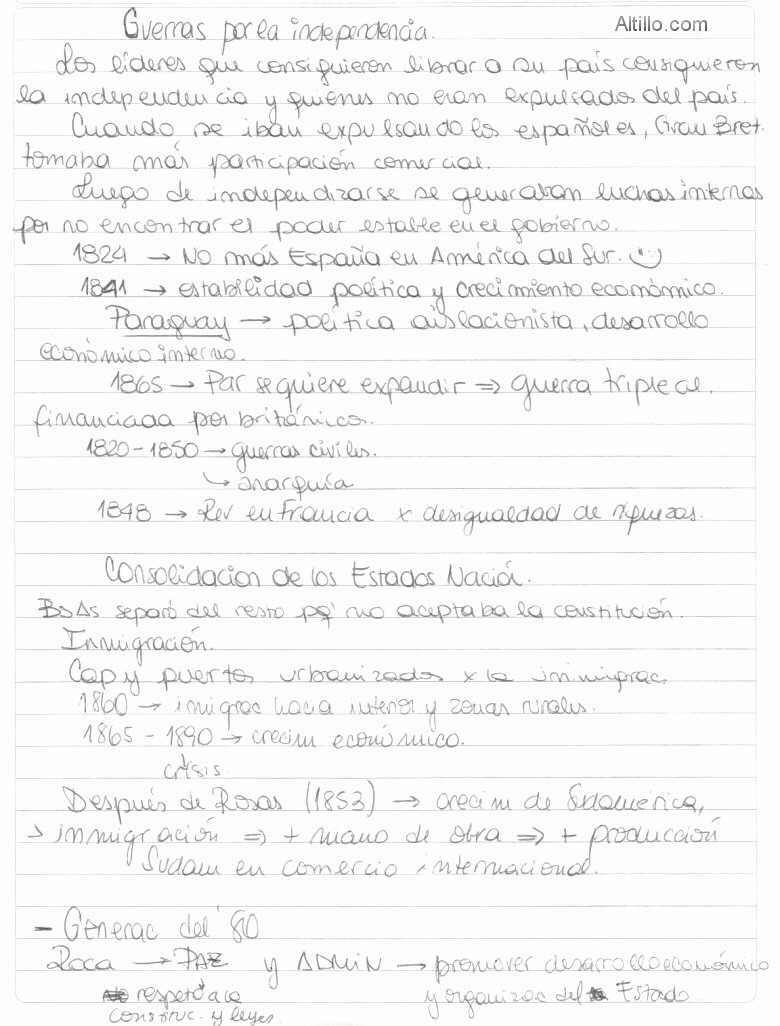 Guerras por la independencia.
Altillo.com
Los líderes que consiguieron librar a su país consiguieron
la independencia y quienes no eran expulsados del país.
Cuando se iban expulsando los españoles, Gran Bret.
tomaba más participación comercial.
Luego de independizarse se generaban luchas internas
por no encontrar el poder estable en el gobierno.
1824 → No más España en América del Sur. :)
1841 → estabilidad política y crecimiento económico.
Paraguay → política aislacionista, desarrollo
económico interno.
1865 → Par se quiere expandir ⇒ guerra triple al.
financiada por británicos.
1820-1850 → guerras civiles.
↳ anarquía
1848 → Rev en Francia x desigualdad de riquezas.
Consolidacion de los Estados Nación.
BsAs separó del resto pq' no aceptaba la constitución.
Inmigración.
Cap y puertos urbanizados x la inmigrac.
1860 → imigrac hacia interior y zonas rurales.
1865 - 1890 → crecim económico.
crisis.
Después de Rosas (1853) → crecim de Sudamérica,
> inmigración ⇒ + mano de obra ⇒ + producción
Sudam en comercio internacional.
- Generac del '80
Roca → PAZ y ADMIN → promover desarrollo económico
respeto a la y organizac del Estado
construc. y leyes.